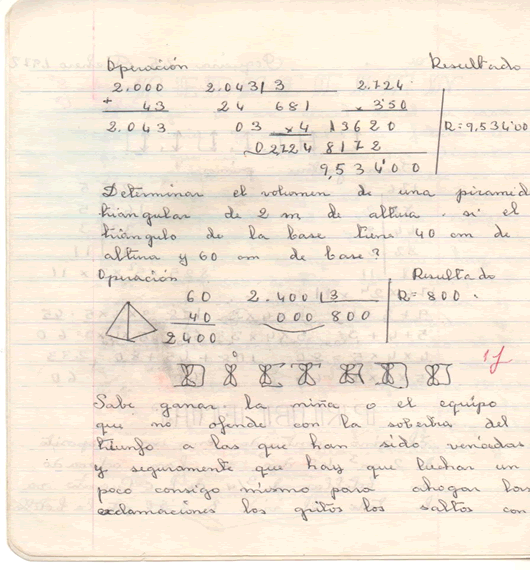 Operación Resultado
2.000 2.043 3 2.724
+ 43 24 681 x 3'50
2.043 03 x4 13620 R=9,534'00
0 2724 8172
9,534'00
Determinar el volumen de una piramide
triangular de 2 m de altura. si el
triángulo de la base tiene 40 cm de
altura y 60 cm de base?
Operación Resultado
60 2.400 3 R=800.
40 000 800
2400
DICTADO
Sabe ganar la niña o el equipo
que no ofende con la soberbia del
triunfo a las que han sido vencidas
y seguramente que hay que luchar un
poco consigo mismo para ahogar las
exclamaciones los gritos los saltos con